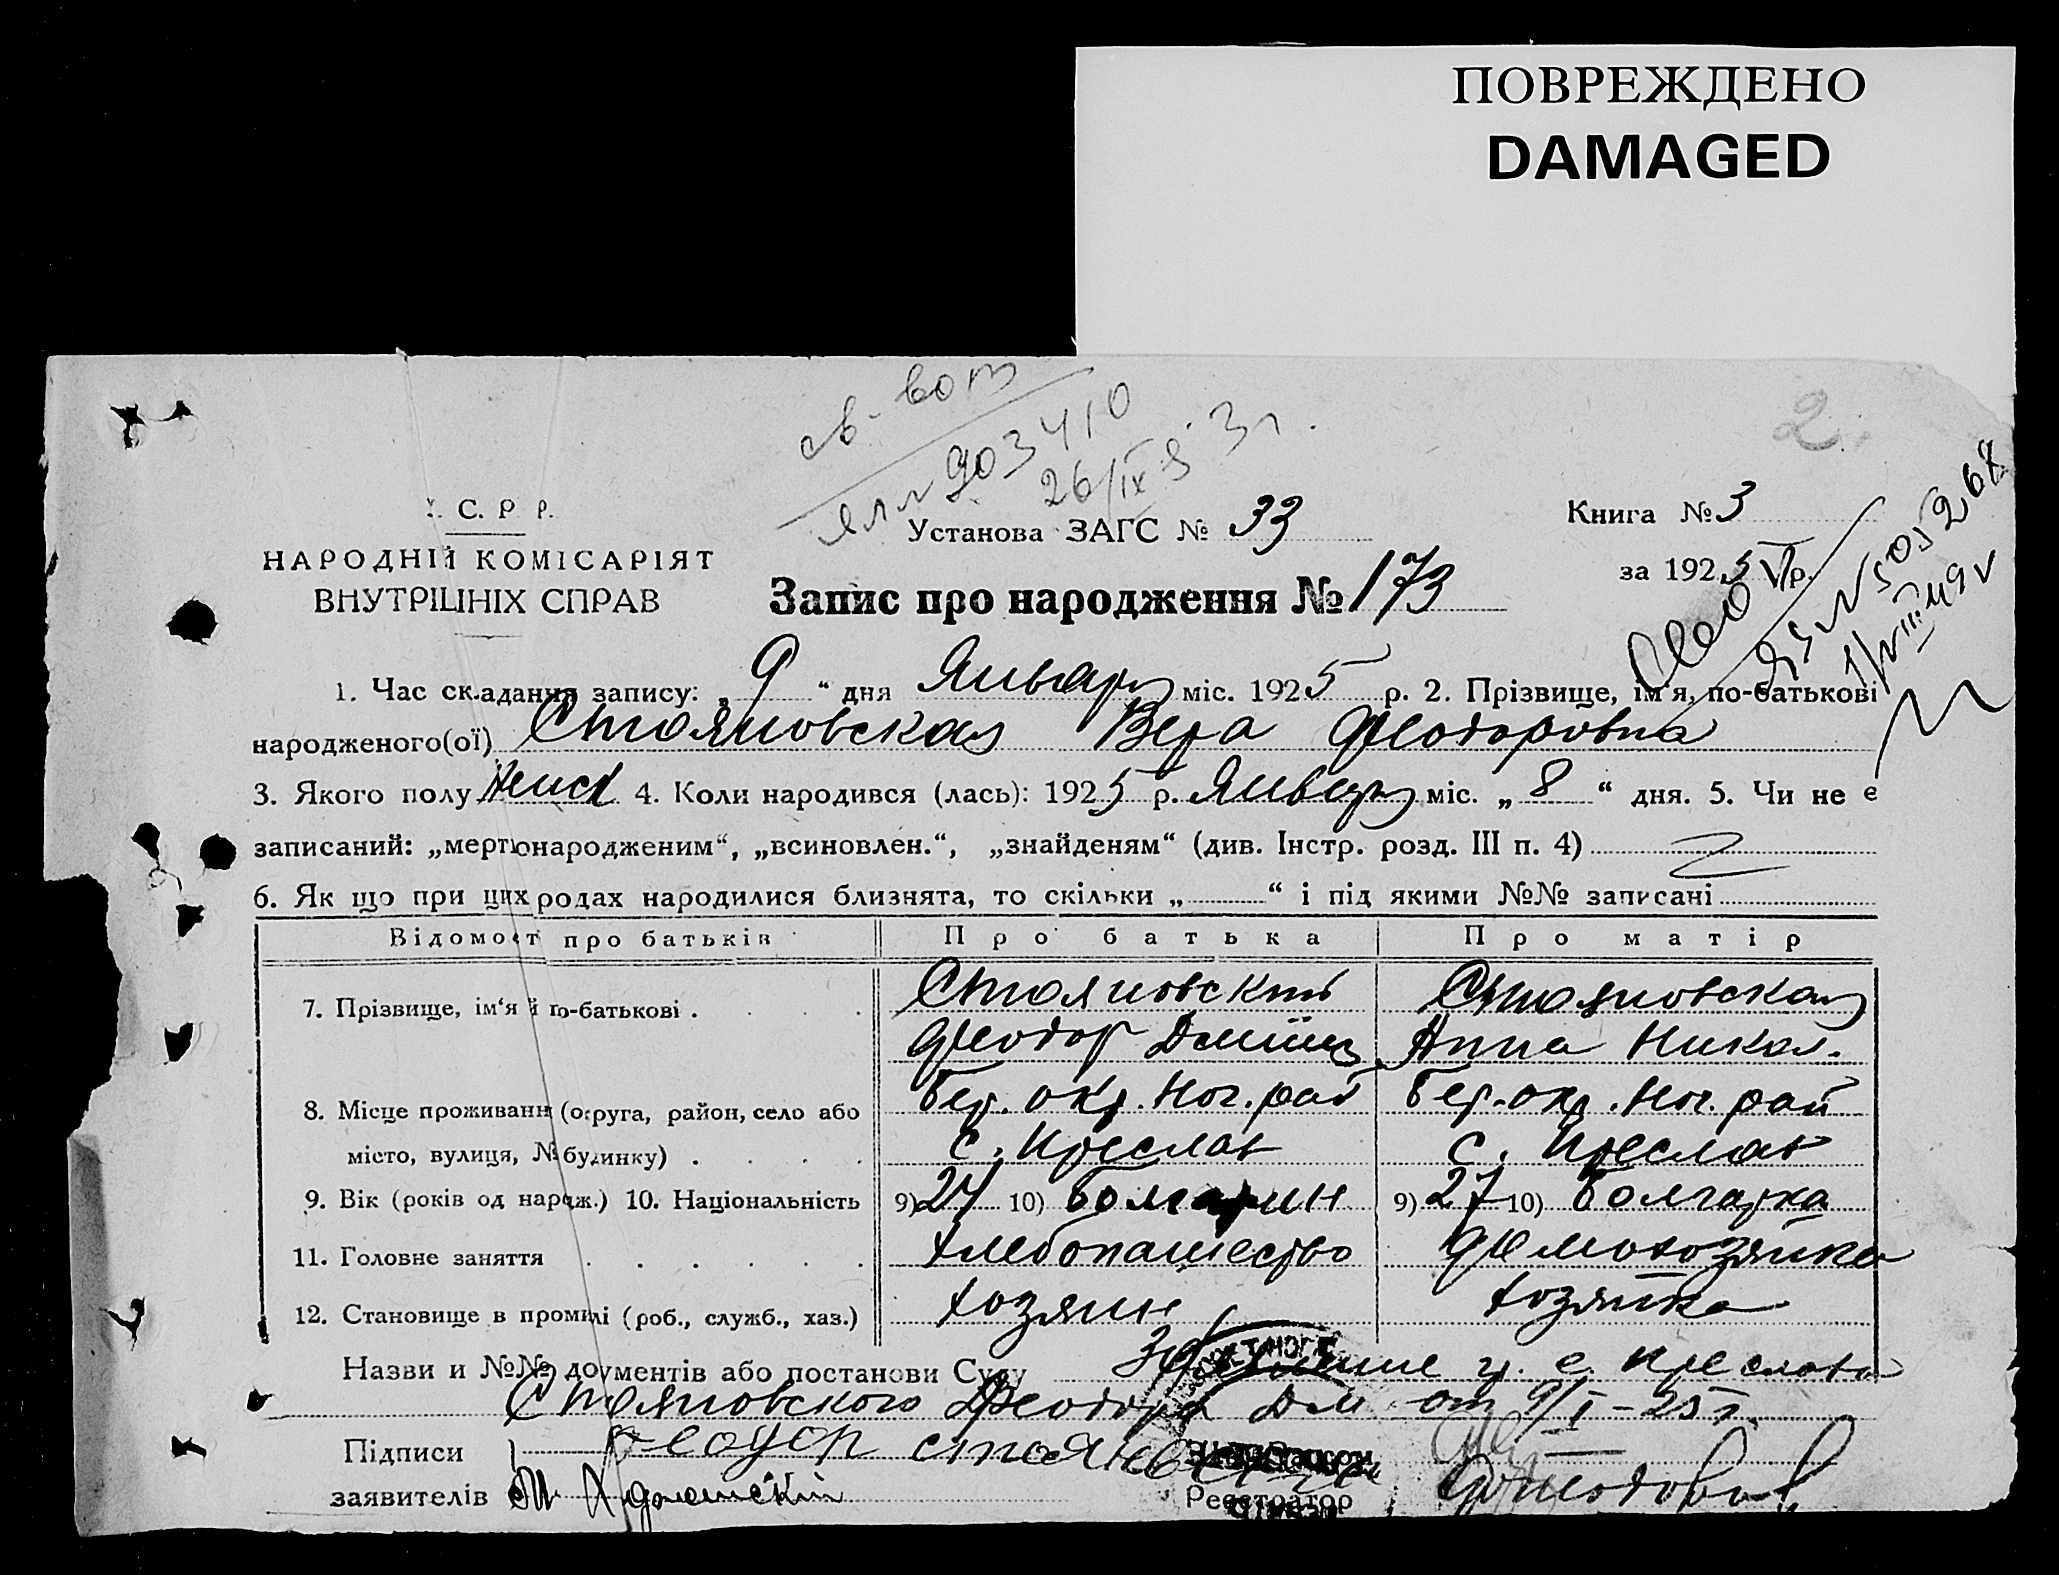 ПОВРЕЖДЕНО
DAMAGED
св-во
ЯЛ № 903410
26/IX 83 г.
2.
У. С. Р. Р.
НАРОДНІЙ КОМІСАРІЯТ
ВНУТРІШНІХ СПРАВ
Установа ЗАГС № 33
Книга № 3
за 1925 р.
Запис про народження № 173
1. Час складання запису: „9“ дня Январ міс. 1925 р. 2. Прізвище, ім‘я, по-батькові
народженого(ої) Стояновская Вера Феодоровна
3. Якого полу женск 4. Коли народився (лась): 1925 р. Январ міс. „8“ дня. 5. Чи не є
записаний: „мертвонародженим“, „всиновлен.“, „знайденям“ (див. Інстр. розд. III п. 4)
6. Як що при цих родах народилися близнята, то скільки „ “ і під якими №№ записані
Відомост про батьків Про батька Про матір
7. Прізвище, ім‘я й по-батькові . Стояновский Стояновская
Феодор Дмит Анна Никол.
8. Місце проживання (округа, район, село або Бер. окр. Ног. рай Бер. окр. Ног. рай
місто, вулиця, № будинку) . с. Преслав с. Преслав
9. Вік (років од нарож.) 10. Національність 9) 24 10) Болгарин 9) 27 10) Болгарка
11. Головне заняття Хлебопашество Домохозяйка
12. Становище в промислі (роб., служб., хаз.) Хозяин Хозяйка
Назви и №№ документів або постанови Суду гр. с. Преслава
Стояновского Феодора Дм. от 9/I-25 г.
Підписи Феодор Стояновский
заявителів
Реєстратор